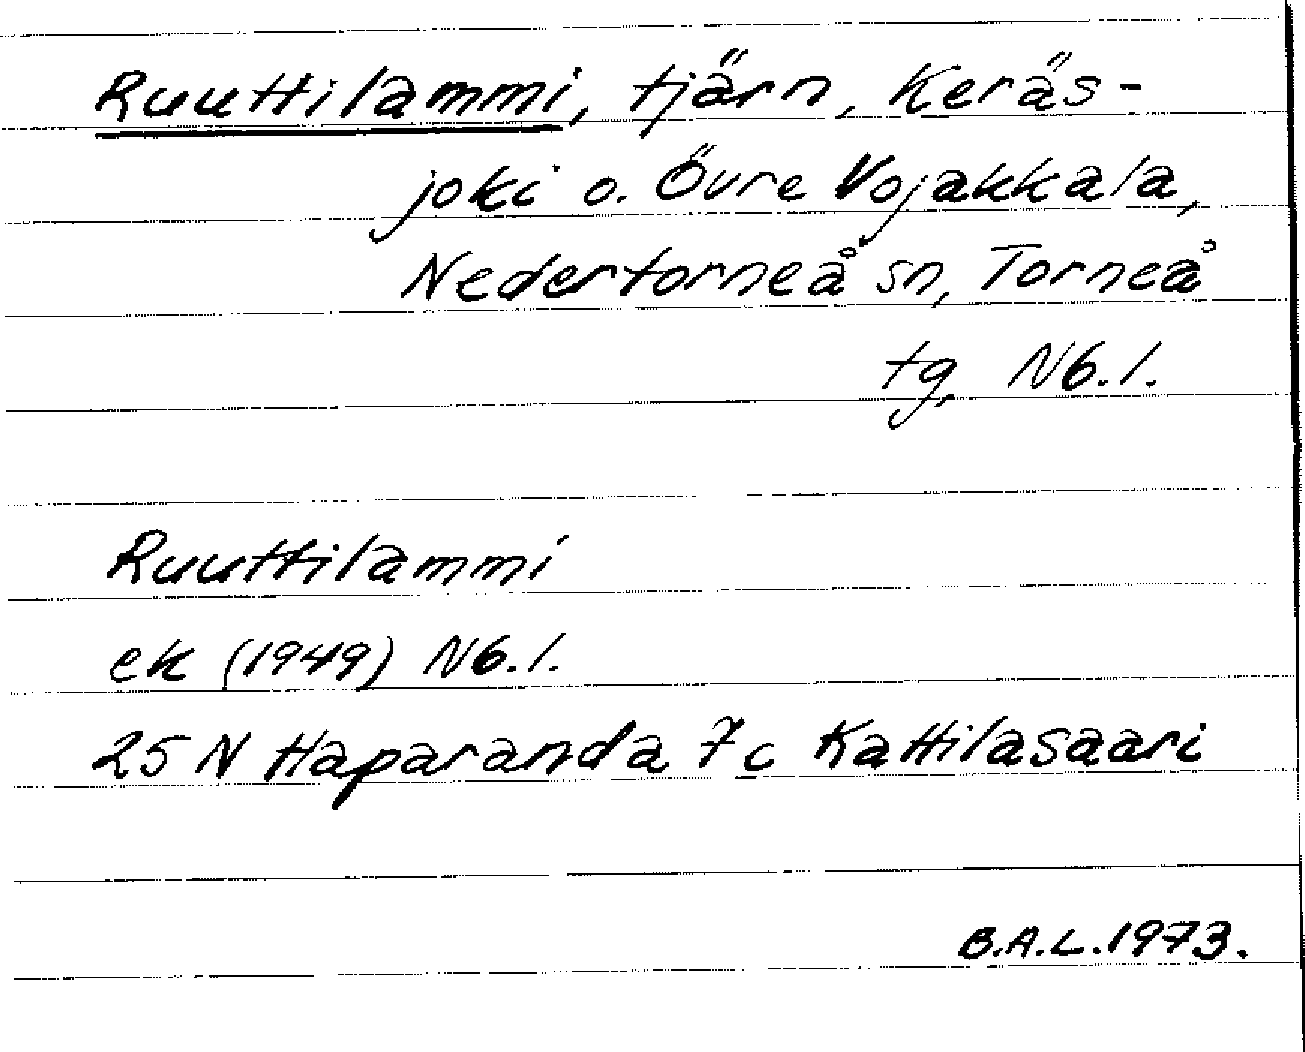 Ruuttilammi, tjärn, Keräs-
joki o. Övre Vojakkala,
Nedertorneå sn, Torneå
tg, Nb.l.
Ruuttilammi
ek (1949) Nb.l.
25 N Haparanda 7c Kattilasaari
B.A.L. 1973.